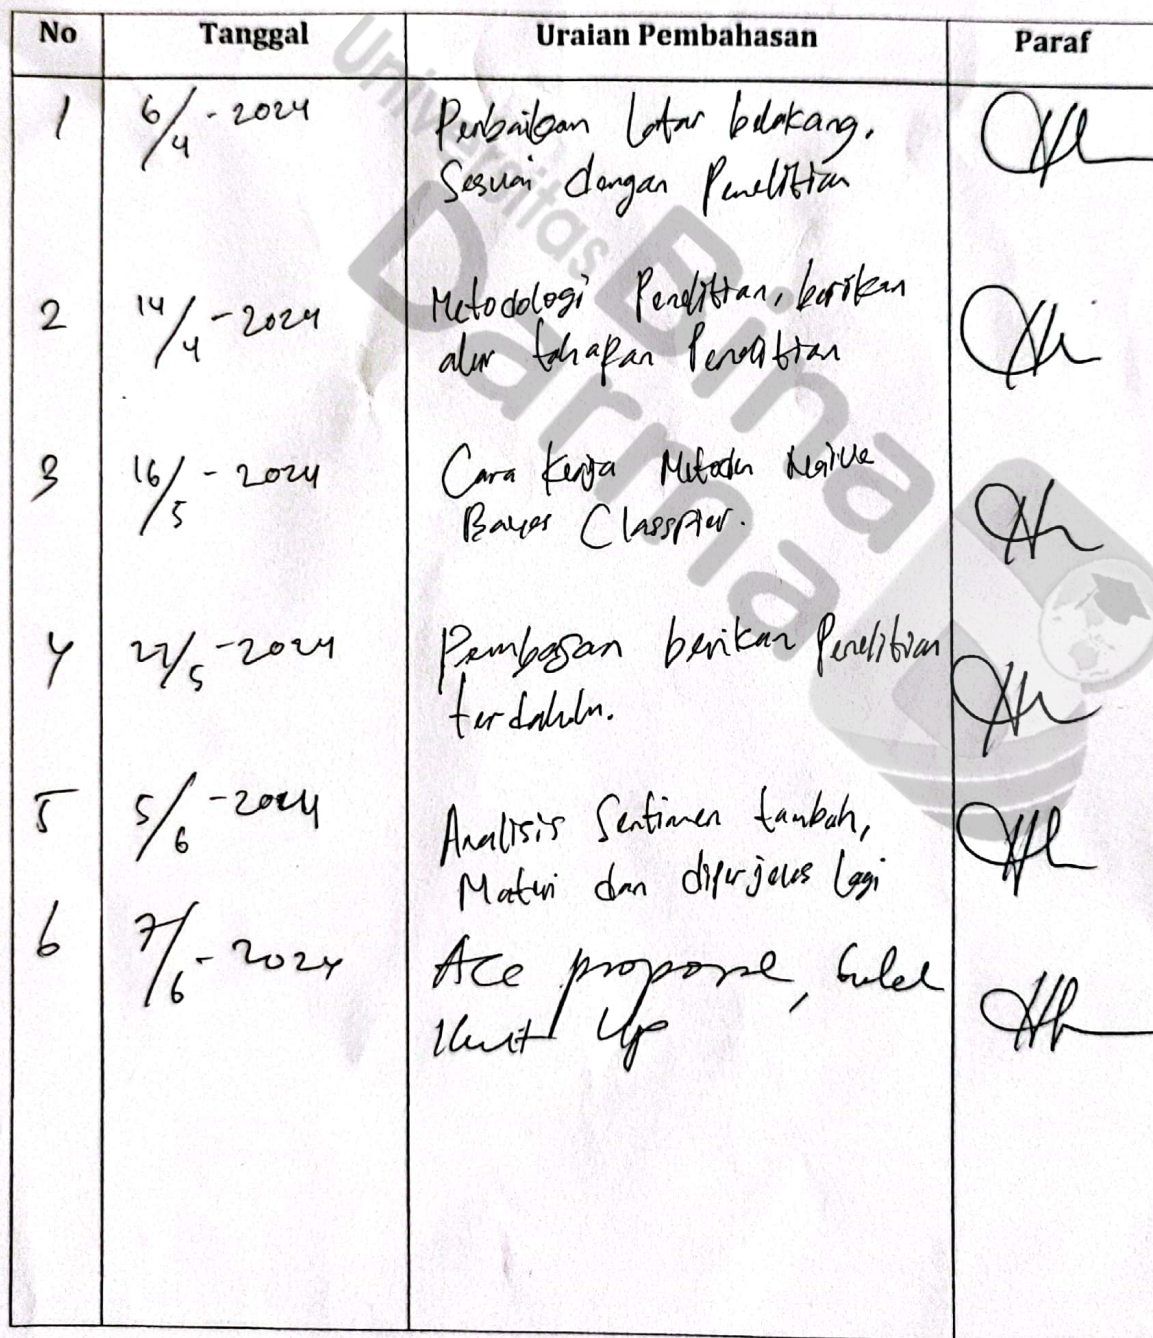 No Tanggal Uraian Pembahasan Paraf
Universitas
Bina
Darma
1 6/4 - 2024 Perbaikan latar belakang.
Sesuai dengan Penelitian
2 14/4 - 2024 Metodologi Penelitian, berikan
alur tahapan Penelitian
3 16/5 - 2024 Cara Kerja Metode Naive
Bayes Classfier.
4 22/5 - 2024 Pembasan berikan Penelitian
terdahulu.
5 5/6 - 2024 Analisis Sentimen tambah,
Materi dan diperjelas lagi
6 7/6 - 2024 Acc proposal,
Up